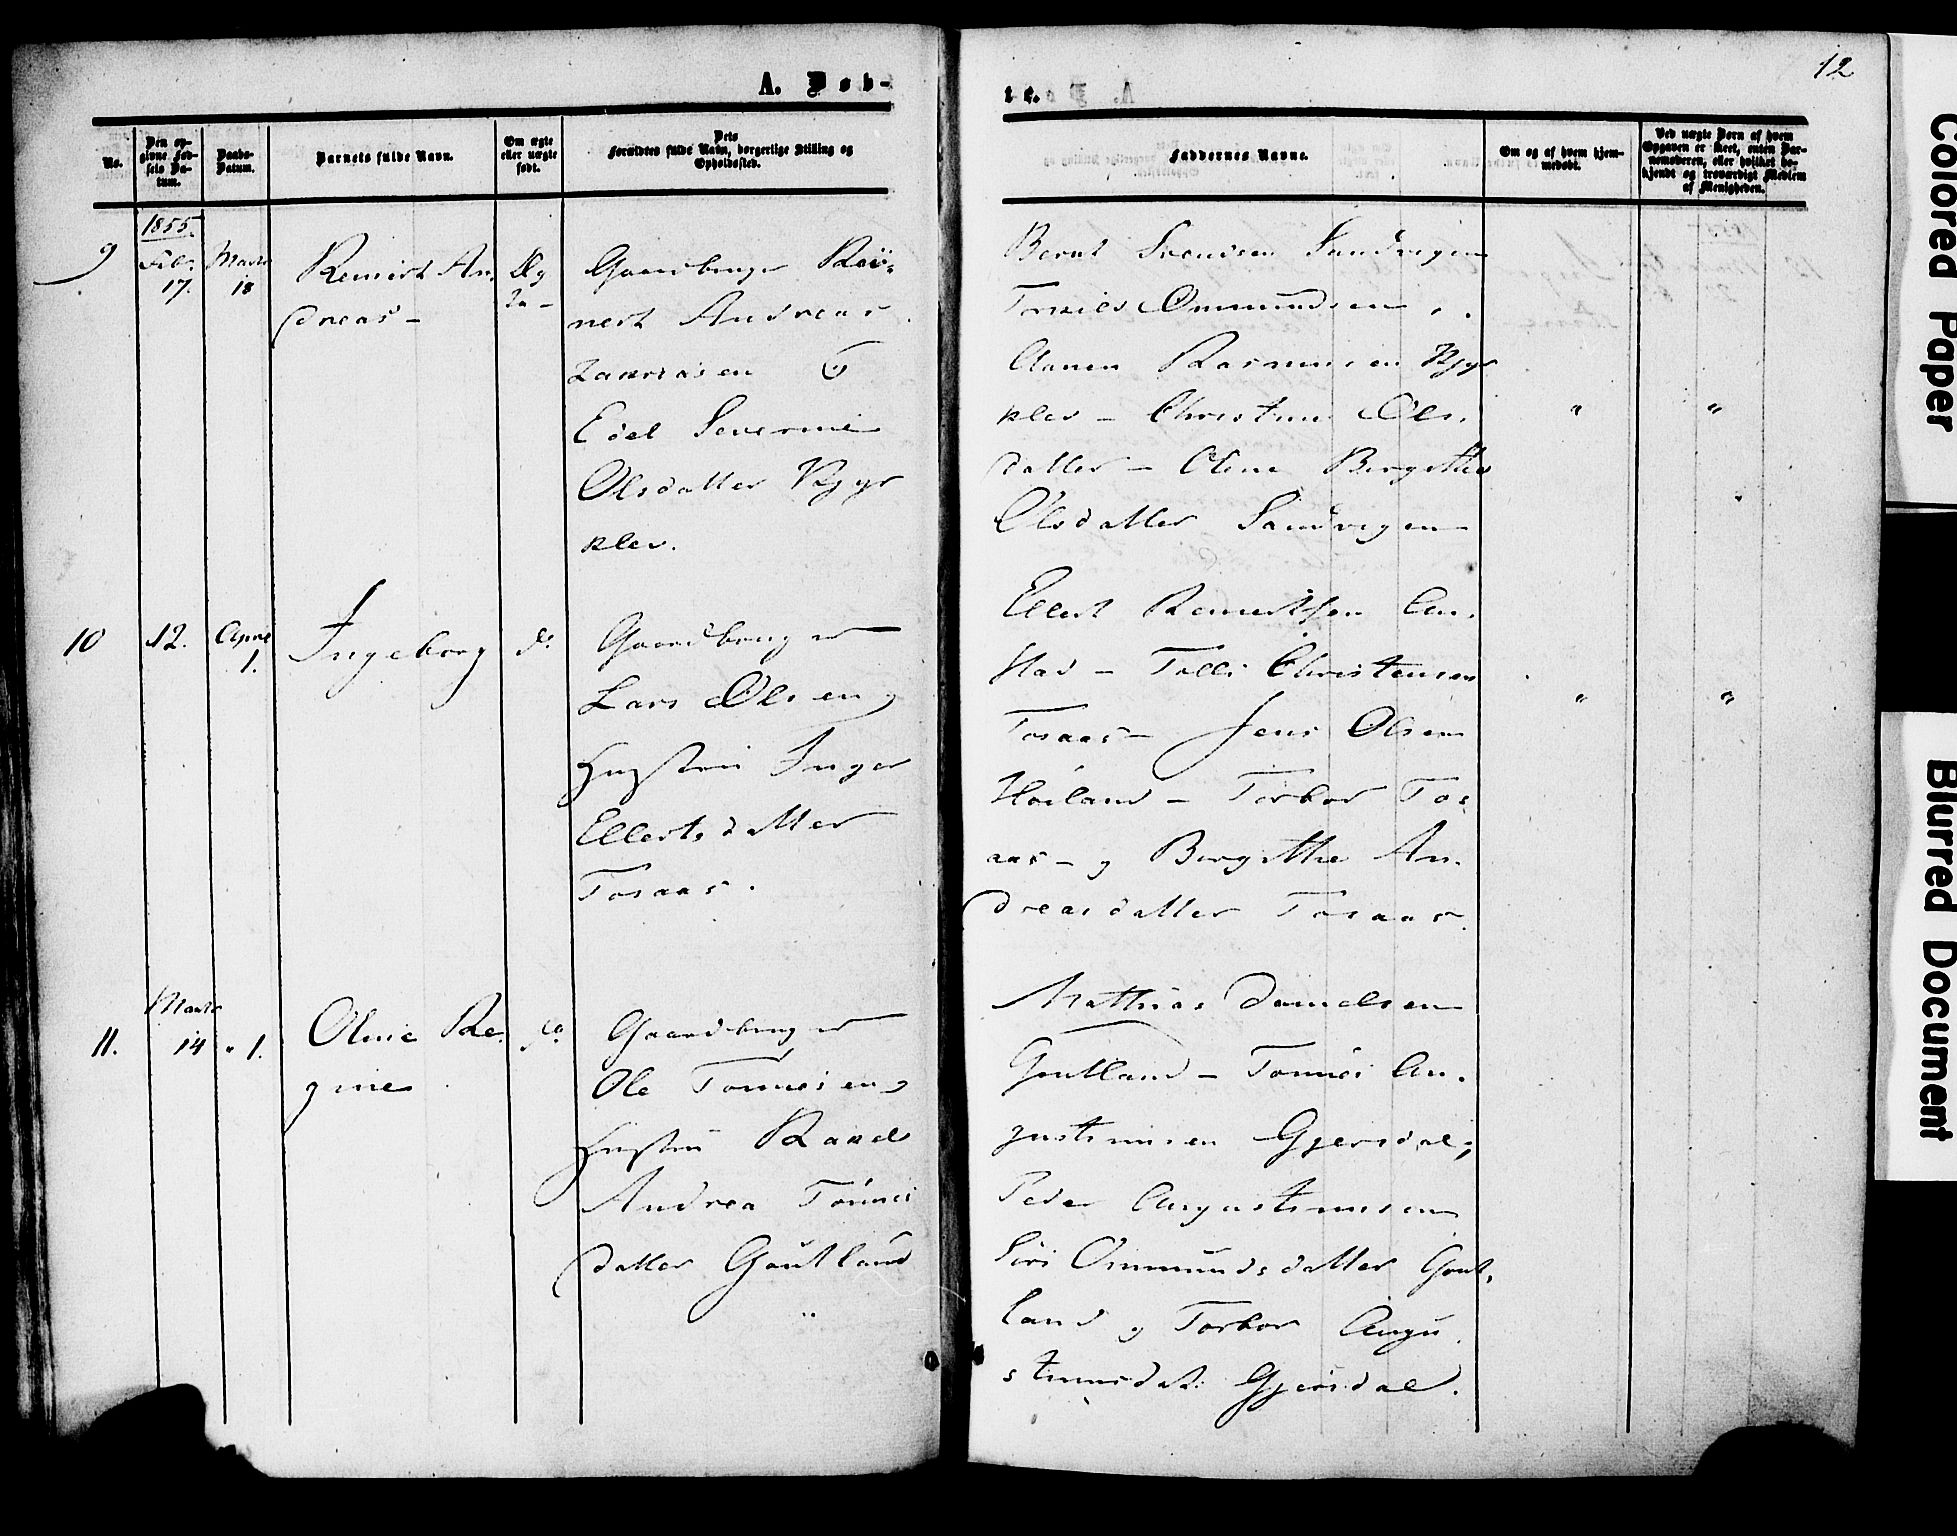 12
A. Døb-
te.
No.
Den op-
givne Fød-
sels Da-
tum.
Daabs-
Datum.
Barnets fulde Navn.
Om ægte
eller uægte
født.
Dets
Forældres fulde Navn, borgerlige Stilling og
Opholdssted.
Faddernes Navne.
Om og af hvem hjem-
medøbt.
Ved uægte Børn af hvem
Opgaven er skeet, enten Bar-
nemoderen, eller hvilket be-
kjendt og troværdigt Medlem
af Menigheden.
1855.
9
Febr.
17.
Marts
18
Reinert An-
dreas -
Æg
te -
Gaardbruger Rei-
nert Andreas
Zakariasen &
Edel Severine
Olsdatter Kjør
klev.
Bernt Svendsen Sandvigen
Tonnes Ommundsen " .
Aanen Rasmussen Kjør
klev - Christine Ols.
datter - Oline Birgithe
Olsdatter Sandvigen
"
"
10
12.
April
1.
Ingeborg
do
Gaardbruger
Lars Olsen og
Hustru Inger
Ellertsdatter
Tosaas.
Ellert Reinertsen An.
stad - Tolli Christensen
Tosaas - Jens Olsen
Høiland - Torbor Tos
aas - og Birgithe An.
dreasdatter Tosaas.
"
"
11.
Marts
14
" 1.
Oline Re-
gine
do
Gaardbruger
Ole Tønnesen og
Hustru Rakel
Andrea Tønnes
datter Goutland
Mathias Danielsen
Goutland - Tønnes Au.
gustinusen Gjersdal,
Peder Augustinusen
Siri Ommundsdatter Gout.
land og Torbor Augu
stinusdat. Gjersdal.
Colored Paper
Blurred Document